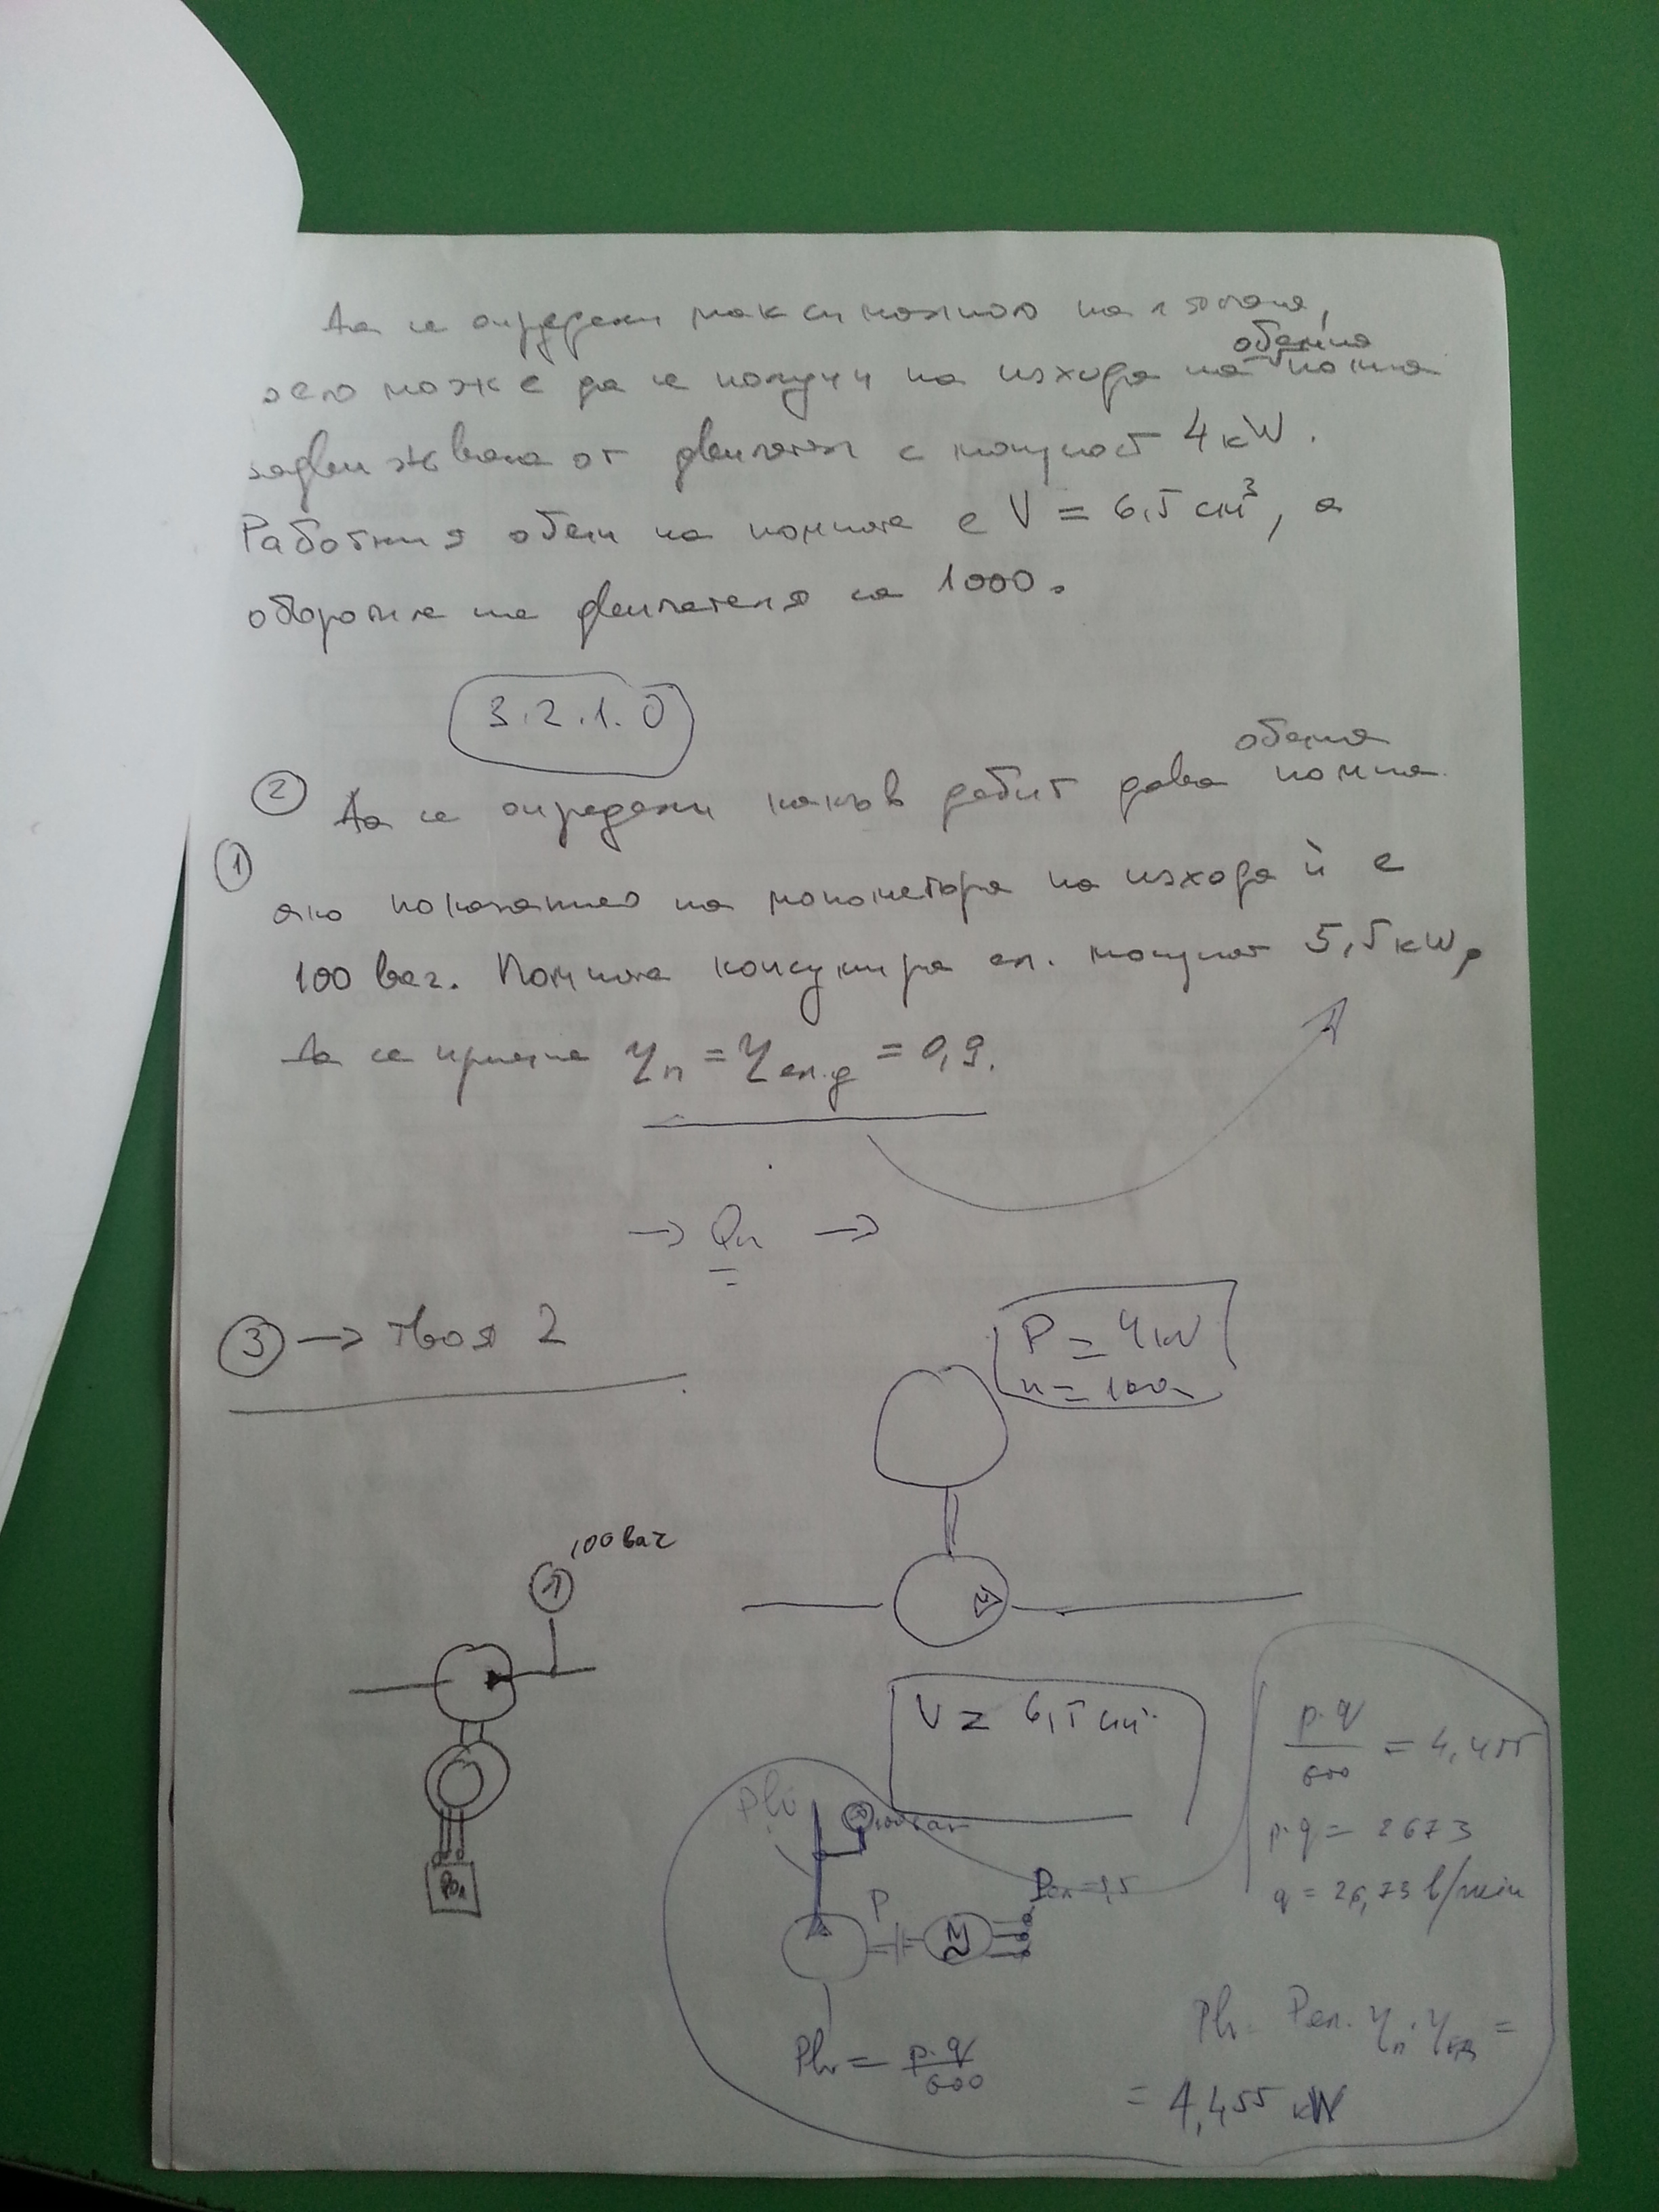 Да се определи максималното налягане,
което може да се получи на изхода на обемна помпа
задвижвана от двигател с мощност 4 kW.
Работния обем на помпата е V = 6,5 cm³, а
оборотите на двигателя са 1000.
3.2.1.0
② Да се определи какъв дебит дава обемна помпа
① ако показанието на манометъра на изхода й е
100 bar. Помпата консумира ел. мощност 5,5 kW,
Да се приеме ηп = ηел.д = 0,9.
→ Qп →
③ → твоя 2
P = 4 kW
n = 1000
100 bar
V = 6,5 cm³
p.q/600 = 4,455
Phr
100 bar
p.q = 2673
Pел = 5,5
q = 26,73 l/min
P
M
Pел
Ph = Pел. ηп. ηед =
Ph = p.q/600
= 4,455 kW